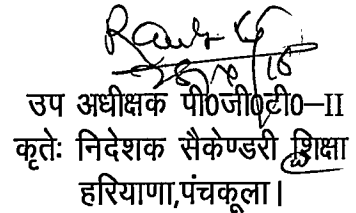 उप अधीक्षक पी0जी0टी0–II
कृतेः निदेशक सैकेण्डरी शिक्षा
हरियाणा,पंचकूला।